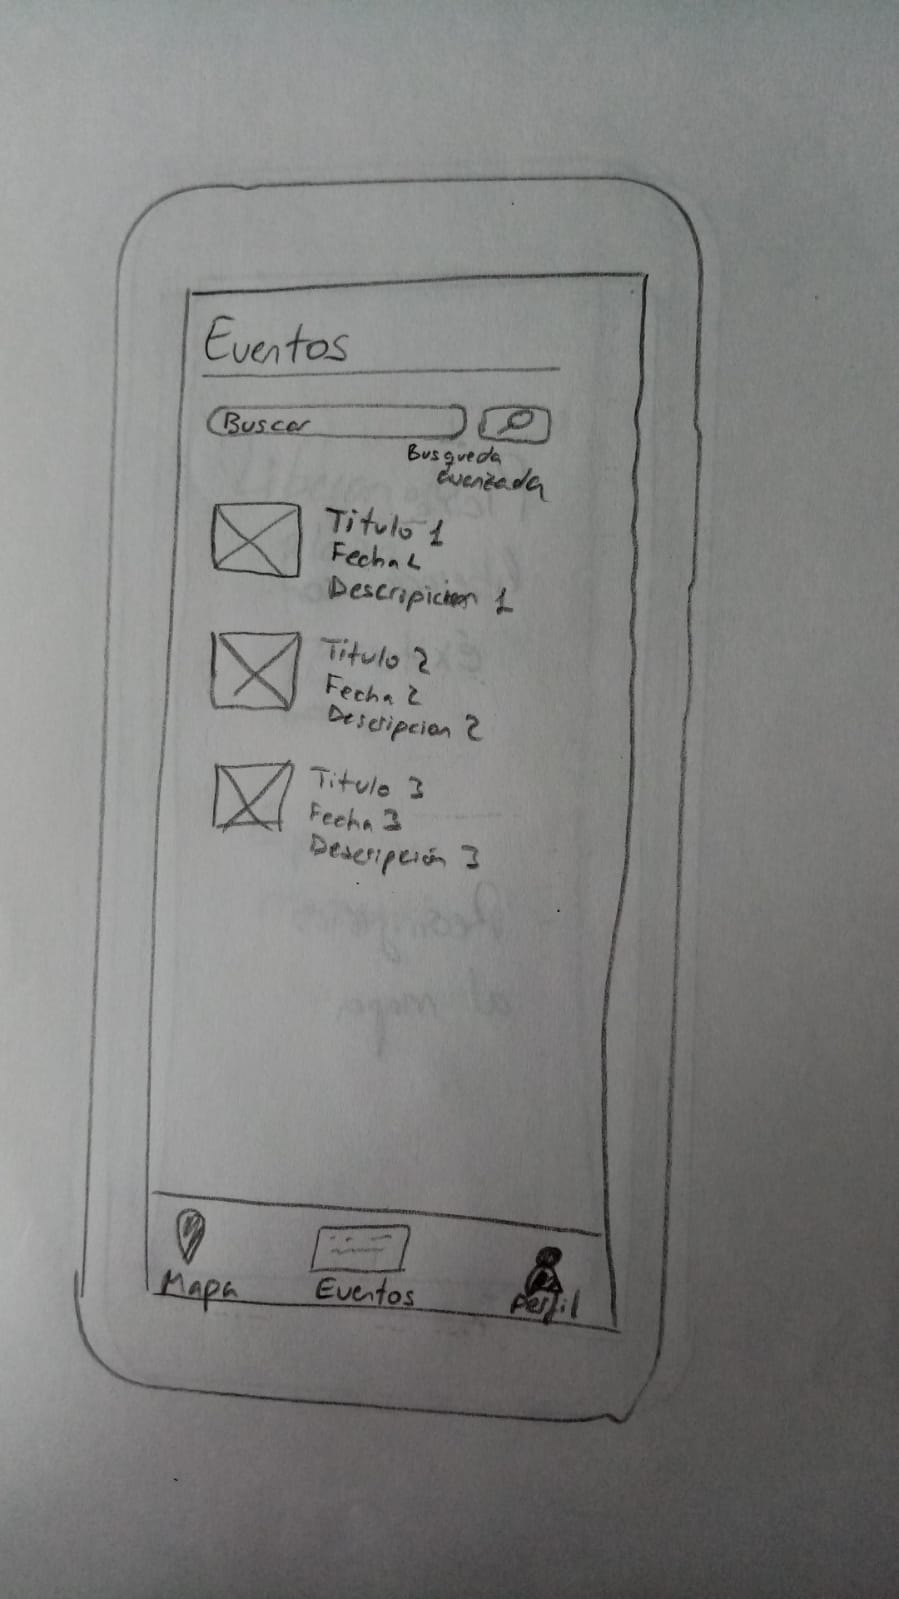 Eventos
Buscar
Busqueda
avanzada
Titulo 1
Fecha 1
Descripicion 1
Titulo 2
Fecha 2
Descripcion 2
Titulo 3
Fecha 3
Descripción 3
Mapa
Eventos
Perfil
al mapa